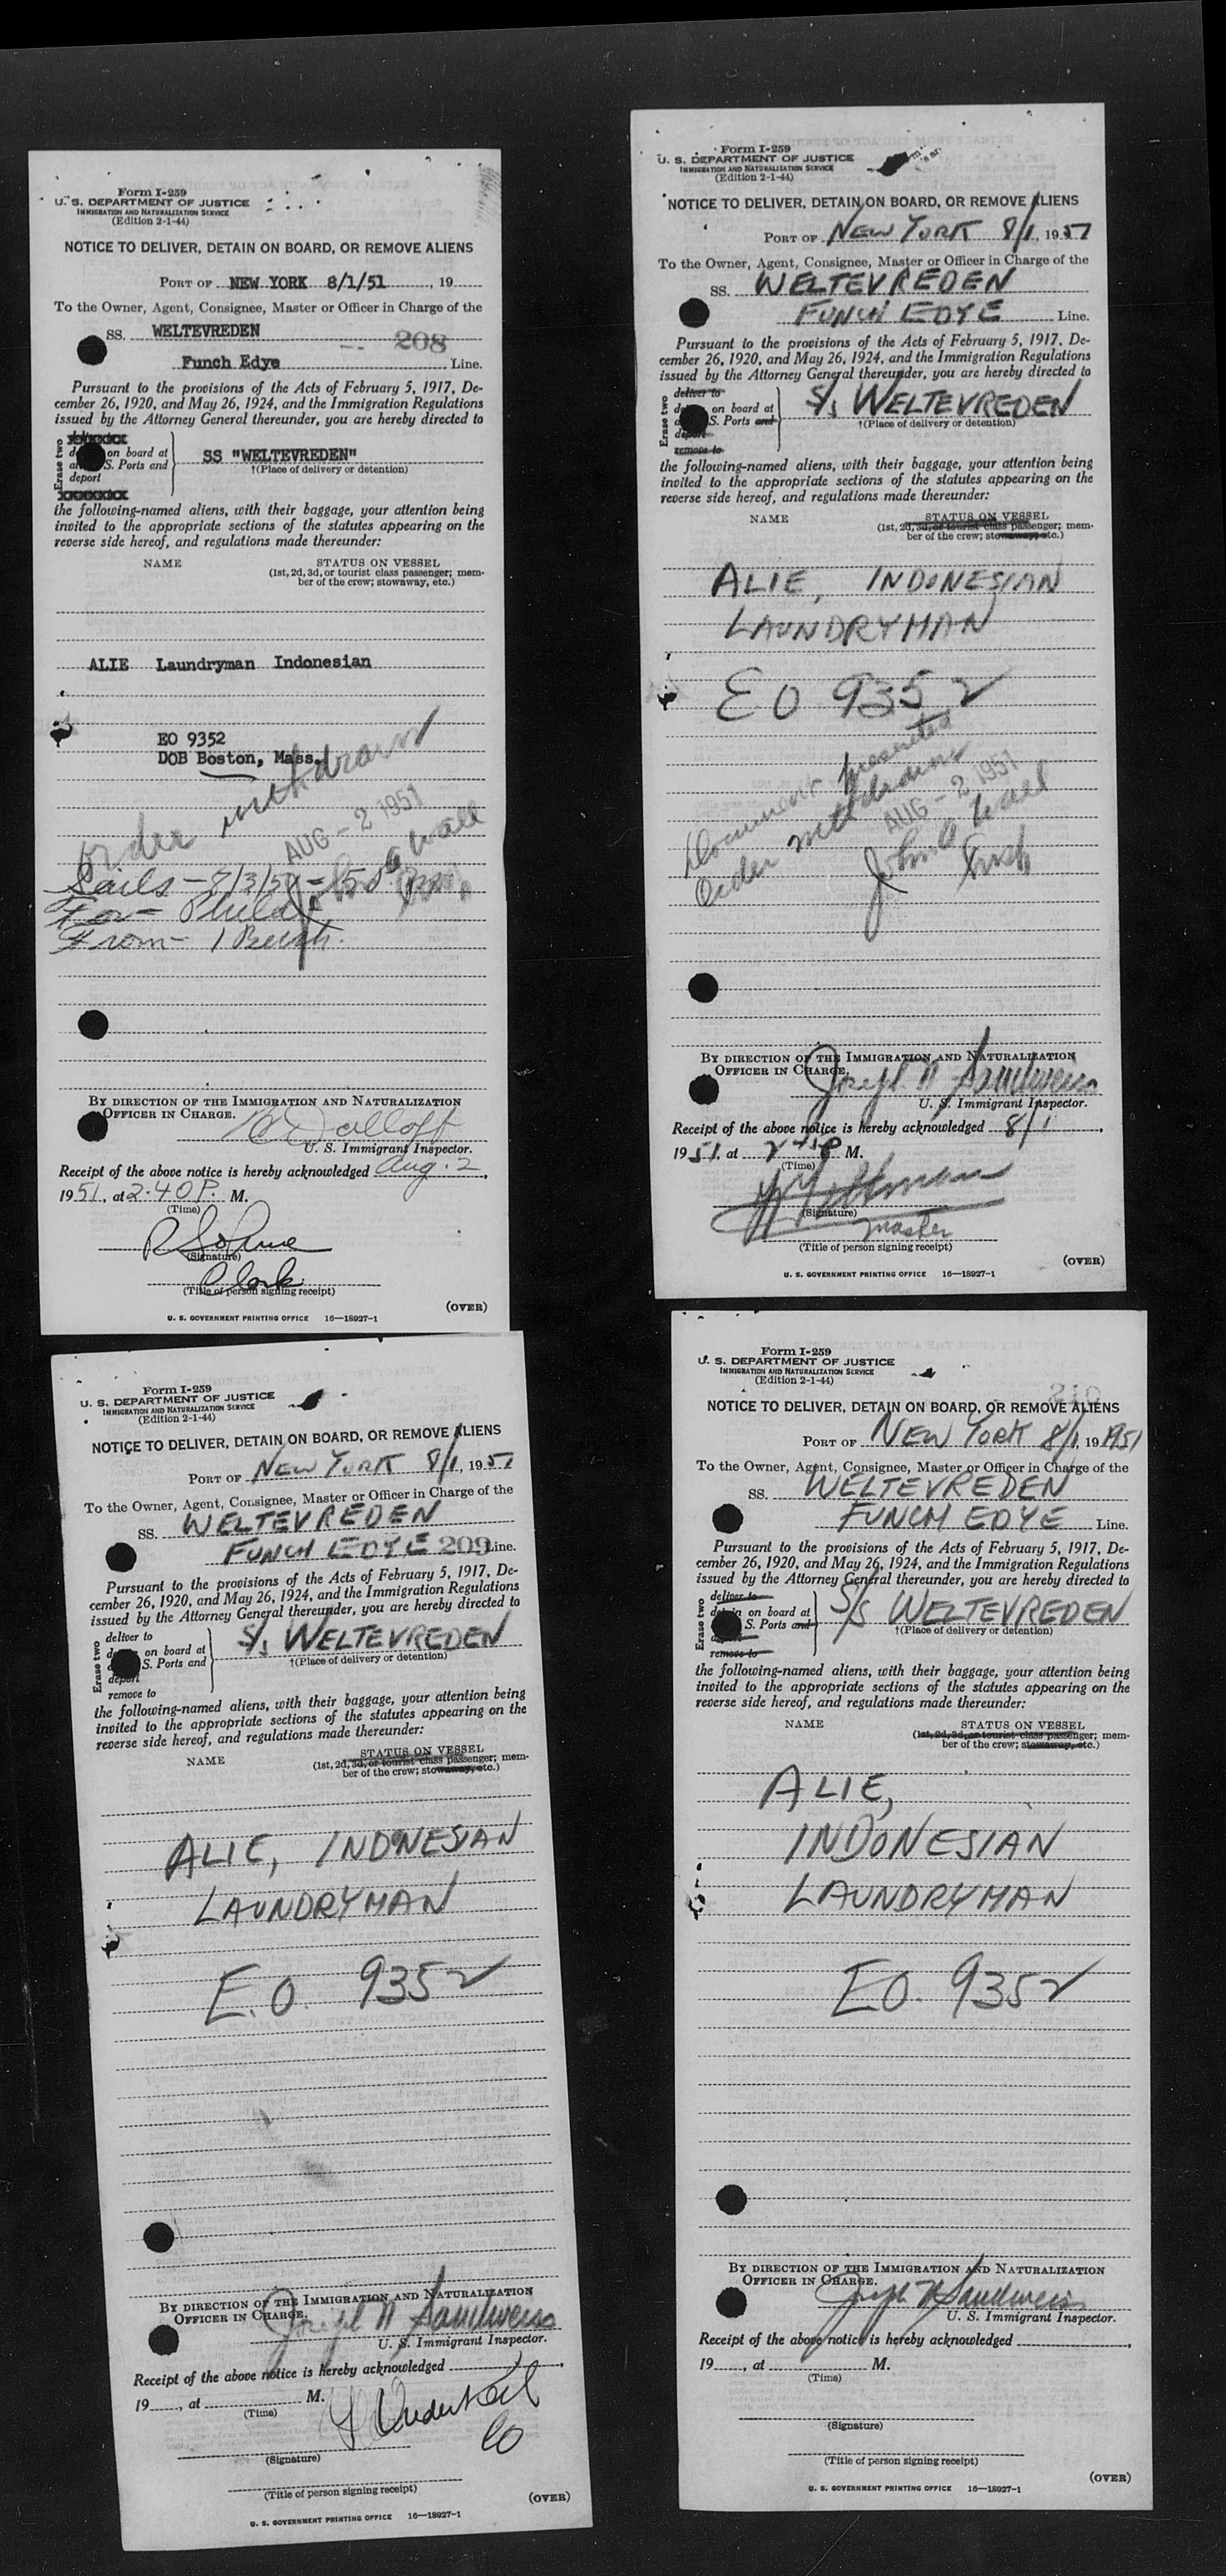 Form I-259
U. S. DEPARTMENT OF JUSTICE
IMMIGRATION AND NATURALIZATION SERVICE
(Edition 2-1-44)
NOTICE TO DELIVER, DETAIN ON BOARD, OR REMOVE ALIENS
PORT OF NEW YORK 8/1/51, 19
To the Owner, Agent, Consignee, Master or Officer in Charge of the
SS. WELTEVREDEN
208
Funch Edye Line.
Pursuant to the provisions of the Acts of February 5, 1917, De-
cember 26, 1920, and May 26, 1924, and the Immigration Regulations
issued by the Attorney General thereunder, you are hereby directed to
Erase two
on board at
S. Ports and
deport
SS "WELTEVREDEN"
†(Place of delivery or detention)
the following-named aliens, with their baggage, your attention being
invited to the appropriate sections of the statutes appearing on the
reverse side hereof, and regulations made thereunder:
NAME STATUS ON VESSEL
(1st, 2d, 3d, or tourist class passenger; mem-
ber of the crew; stowaway, etc.)
ALIE Laundryman Indonesian
EO 9352
DOB Boston, Mass.
Order withdrawn
AUG - 2 1951
Sails - 8/3/51 -
For - Phila
From - 1
BY DIRECTION OF THE IMMIGRATION AND NATURALIZATION
OFFICER IN CHARGE.
U. S. Immigrant Inspector.
Receipt of the above notice is hereby acknowledged Aug. 2,
1951, at 2.40 P. M.
(Time)
(Signature)
Clerk
(Title of person signing receipt)
(OVER)
U. S. GOVERNMENT PRINTING OFFICE 16—18927-1
Form I-259
U. S. DEPARTMENT OF JUSTICE
IMMIGRATION AND NATURALIZATION SERVICE
(Edition 2-1-44)
NOTICE TO DELIVER, DETAIN ON BOARD, OR REMOVE ALIENS
PORT OF NEW YORK 8/1, 1951
To the Owner, Agent, Consignee, Master or Officer in Charge of the
SS. WELTEVREDEN
FUNCH EDYE Line.
Pursuant to the provisions of the Acts of February 5, 1917, De-
cember 26, 1920, and May 26, 1924, and the Immigration Regulations
issued by the Attorney General thereunder, you are hereby directed to
Erase two
deliver to
on board at
S. Ports and
deport
remove to
S/S WELTEVREDEN
†(Place of delivery or detention)
the following-named aliens, with their baggage, your attention being
invited to the appropriate sections of the statutes appearing on the
reverse side hereof, and regulations made thereunder:
NAME STATUS ON VESSEL
(1st, 2d, 3d, or tourist class passenger; mem-
ber of the crew; stowaway, etc.)
ALIE, INDONESIAN
LAUNDRYMAN
EO 9352
Document presented
Order withdrawn
AUG - 2 1951
BY DIRECTION OF THE IMMIGRATION AND NATURALIZATION
OFFICER IN CHARGE.
Joseph N Sandweiss
U. S. Immigrant Inspector.
Receipt of the above notice is hereby acknowledged 8/1,
1951, at M.
(Time)
(Signature)
master
(Title of person signing receipt)
(OVER)
U. S. GOVERNMENT PRINTING OFFICE 16—18927-1
Form I-259
U. S. DEPARTMENT OF JUSTICE
IMMIGRATION AND NATURALIZATION SERVICE
(Edition 2-1-44)
NOTICE TO DELIVER, DETAIN ON BOARD, OR REMOVE ALIENS
PORT OF NEW YORK 8/1, 1951
To the Owner, Agent, Consignee, Master or Officer in Charge of the
SS. WELTEVREDEN
FUNCH EDYE 209 Line.
Pursuant to the provisions of the Acts of February 5, 1917, De-
cember 26, 1920, and May 26, 1924, and the Immigration Regulations
issued by the Attorney General thereunder, you are hereby directed to
Erase two
deliver to
on board at
S. Ports and
deport
remove to
S/S WELTEVREDEN
†(Place of delivery or detention)
the following-named aliens, with their baggage, your attention being
invited to the appropriate sections of the statutes appearing on the
reverse side hereof, and regulations made thereunder:
NAME STATUS ON VESSEL
(1st, 2d, 3d, or tourist class passenger; mem-
ber of the crew; stowaway, etc.)
ALIE, INDONESIAN
LAUNDRYMAN
E.O. 9352
BY DIRECTION OF THE IMMIGRATION AND NATURALIZATION
OFFICER IN CHARGE.
Joseph N Sandweiss
U. S. Immigrant Inspector.
Receipt of the above notice is hereby acknowledged ,
19 , at M.
(Time)
(Signature)
(Title of person signing receipt)
(OVER)
U. S. GOVERNMENT PRINTING OFFICE 16—18927-1
Form I-259
U. S. DEPARTMENT OF JUSTICE
IMMIGRATION AND NATURALIZATION SERVICE
(Edition 2-1-44)
210
NOTICE TO DELIVER, DETAIN ON BOARD, OR REMOVE ALIENS
PORT OF NEW YORK 8/1, 19 1951
To the Owner, Agent, Consignee, Master or Officer in Charge of the
SS. WELTEVREDEN
FUNCH EDYE Line.
Pursuant to the provisions of the Acts of February 5, 1917, De-
cember 26, 1920, and May 26, 1924, and the Immigration Regulations
issued by the Attorney General thereunder, you are hereby directed to
Erase two
deliver to
detain on board at
S. Ports and
remove to
S/S WELTEVREDEN
†(Place of delivery or detention)
the following-named aliens, with their baggage, your attention being
invited to the appropriate sections of the statutes appearing on the
reverse side hereof, and regulations made thereunder:
NAME STATUS ON VESSEL
(1st, 2d, 3d, or tourist class passenger; mem-
ber of the crew; stowaway, etc.)
ALIE,
INDONESIAN
LAUNDRYMAN
EO. 9352
BY DIRECTION OF THE IMMIGRATION AND NATURALIZATION
OFFICER IN CHARGE.
Joseph N Sandweiss
U. S. Immigrant Inspector.
Receipt of the above notice is hereby acknowledged ,
19 , at M.
(Time)
(Signature)
(Title of person signing receipt)
(OVER)
U. S. GOVERNMENT PRINTING OFFICE 16—18927-1